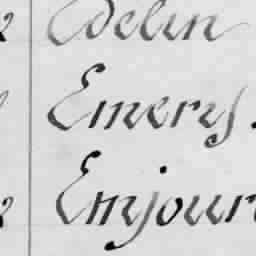 Edelin
Emerys.
Emjour